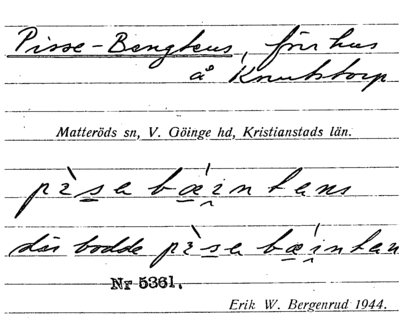 Pisse-Bengtens, förr hus
å Knutstorp
Matteröds sn, V. Göinge hd, Kristianstads län.
pìsa bǽintens
där bodde pìsa bǽintan
Nr 5361.
Erik W. Bergenrud 1944.